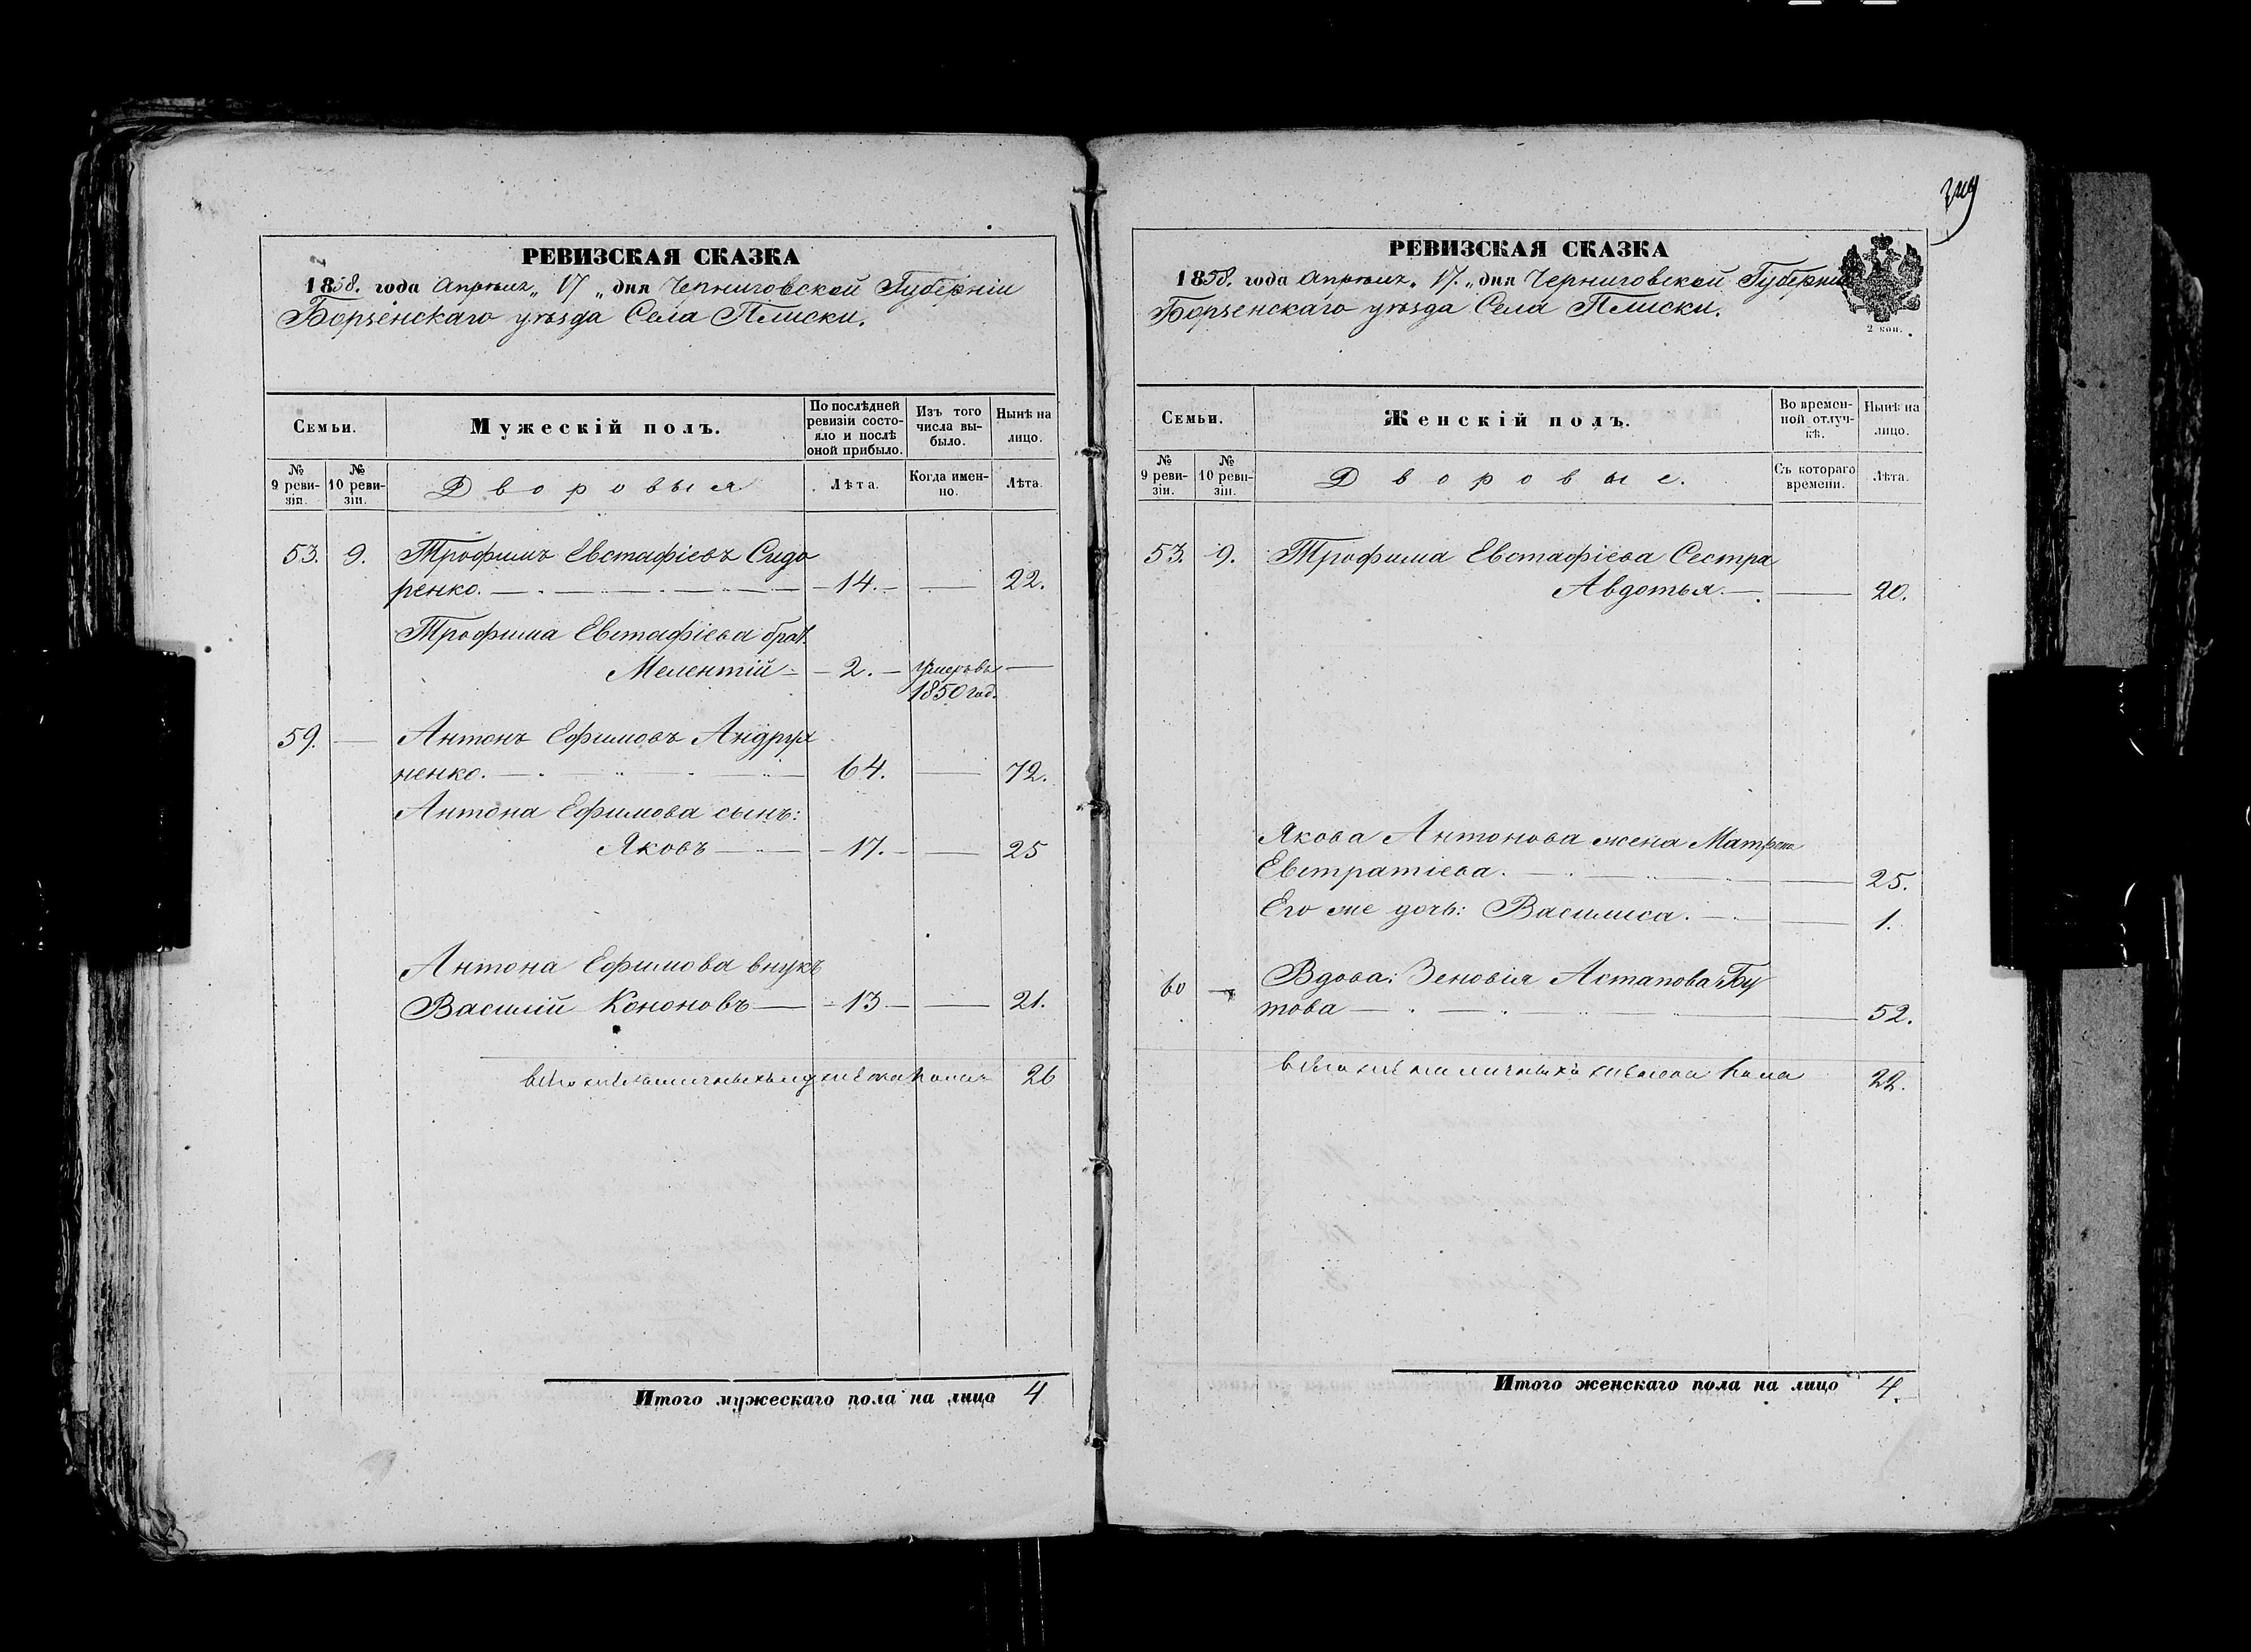 РЕВИЗСКАЯ СКАЗКА
1858. года Апрѣля „ 17 „ дня Черниговской Губерніи
Борзенскаго уѣзда Села Плиски.
Семьи.
Мужескій полъ.
По послѣдней ревизіи состояло и послѣ оной прибыло.
Изъ того числа выбыло.
Нынѣ на лицо.
№ 9 ревизіи.
№ 10 ревизіи.
Дворовыя
Лѣта.
Когда именно.
Лѣта.
53. 9. Трофимъ Евстафіевъ Сидо
ренко. 14. 22.
Трофима Евстафіева братъ
Мелентій 2. Умеръ въ
1850 год.
59. Антонъ Ефимовъ Андрух
ненко. 64. 72.
Антона Ефимова сынъ:
Яковъ 17. 25
Антона Ефимова внукъ
Василій Кононовъ 13 21.
26
Итого мужескаго пола на лицо 4
РЕВИЗСКАЯ СКАЗКА
1858. года Апрѣля „ 17. „ дня Черниговской Губерніи
Борзенскаго уѣзда Села Плиски.
2 коп.
Семьи.
Женскій полъ.
Во временной отлучкѣ.
Нынѣ на лицо.
№ 9 ревизіи.
№ 10 ревизіи.
Дворовые.
Съ котораго времени.
Лѣта.
53. 9. Трофима Евстафіева Сестра
Авдотья. 20.
Якова Антонова жена Матрена
Евстратіева. 25.
Его же дочь: Василиса. 1.
60 Вдова: Зеновія Астапова Бу
това 52.
пола 22.
Итого женскаго пола на лицо 4.